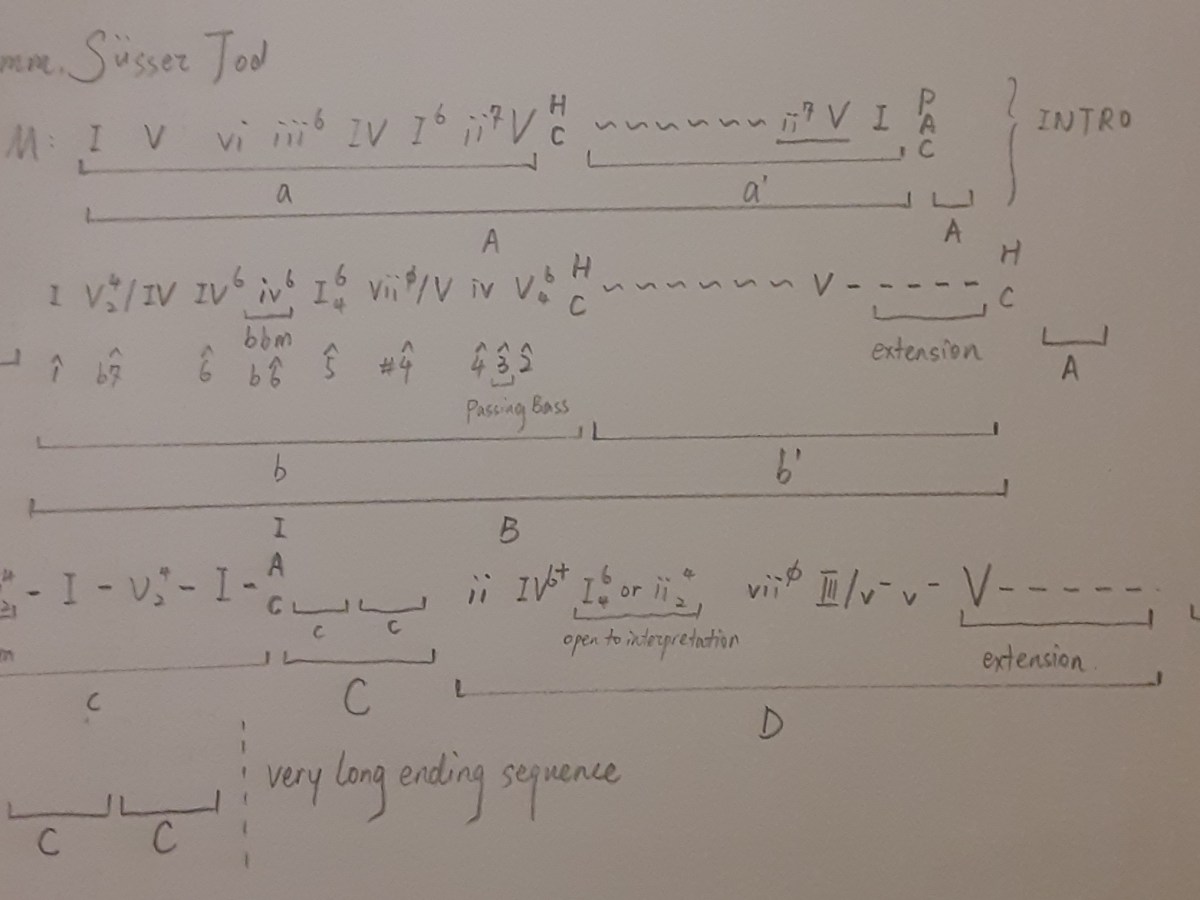 mm, Süsser Tod
M: I V vi iii⁶ IV I⁶ ii⁷ V HC ~~~~~~~ ii⁷ V I PAC INTRO
a a'
A A
I V⁴₂/IV IV⁶ iv⁶ I⁶₄ viiø/V iv V⁶₄ HC ~~~~~~~ V - - - - - HC
bbm extension A
1̂ b7̂ 6̂ b6̂ 5̂ #4̂ 4̂ 3̂ 2̂
Passing Bass
b b'
I B
- I - V⁴₂ - I - IAC ii IV⁶⁺ I⁶₄ or ii⁴₂ viiø III/v - v - V - - - - -
m c c open to interpretation extension
c C D
very long ending sequence
C C